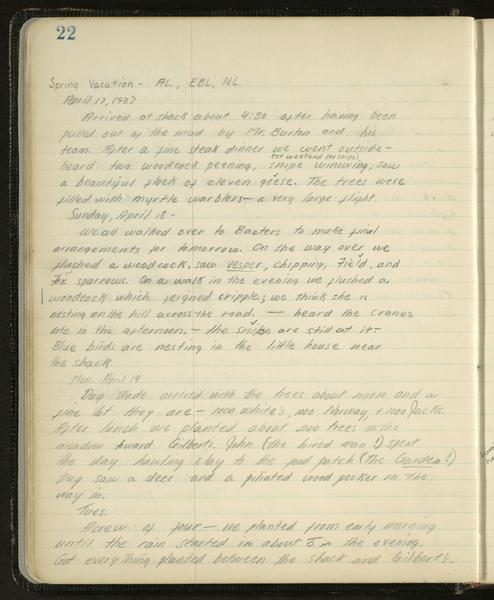 22
Spring Vacation - AL., EBL, NL.
April 17, 1937
Arrived at shack about 4:30 after having been
pulled out of the mud by Mr. Burton and his
team. After a fine steak dinner we went outside -
heard two woodcock peening, snipe winowing, saw
(1st weekend for snipe)
a beautiful flock of eleven geese. The trees were
filled with myrtle warblers - a very large flight.
Sunday, April 18 -
We all walked over to Baxters to make final
arrangements for tomorrow. On the way over we
flushed a woodcock, saw Vesper, chipping, Field, and
Fox sparrows. On a walk in the evening we flushed a
woodcock which feigned cripple; we think she is
nesting on the hill across the road. — heard the cranes
late in the afternoon. - the snipe are still at it -
Blue birds are nesting in the little house near
the shack
Mon. April 19
Dug Wade arrived with the trees about noon and a
fine lot they are - 1000 white's, 1000 Norway, + 1000 Jacks.
After lunch we planted about 200 trees in the
meadow toward Gilberts. John (the hired man!) spent
the day hauling clay to the food patch (The Garden!)
Dug saw a deer and a piliated wood pecker on the
way in.
Tues.
A crew of four - we planted from early morning
until the rain started in about 5 in the evening.
Got everything planted between the shack and Gilbert's.